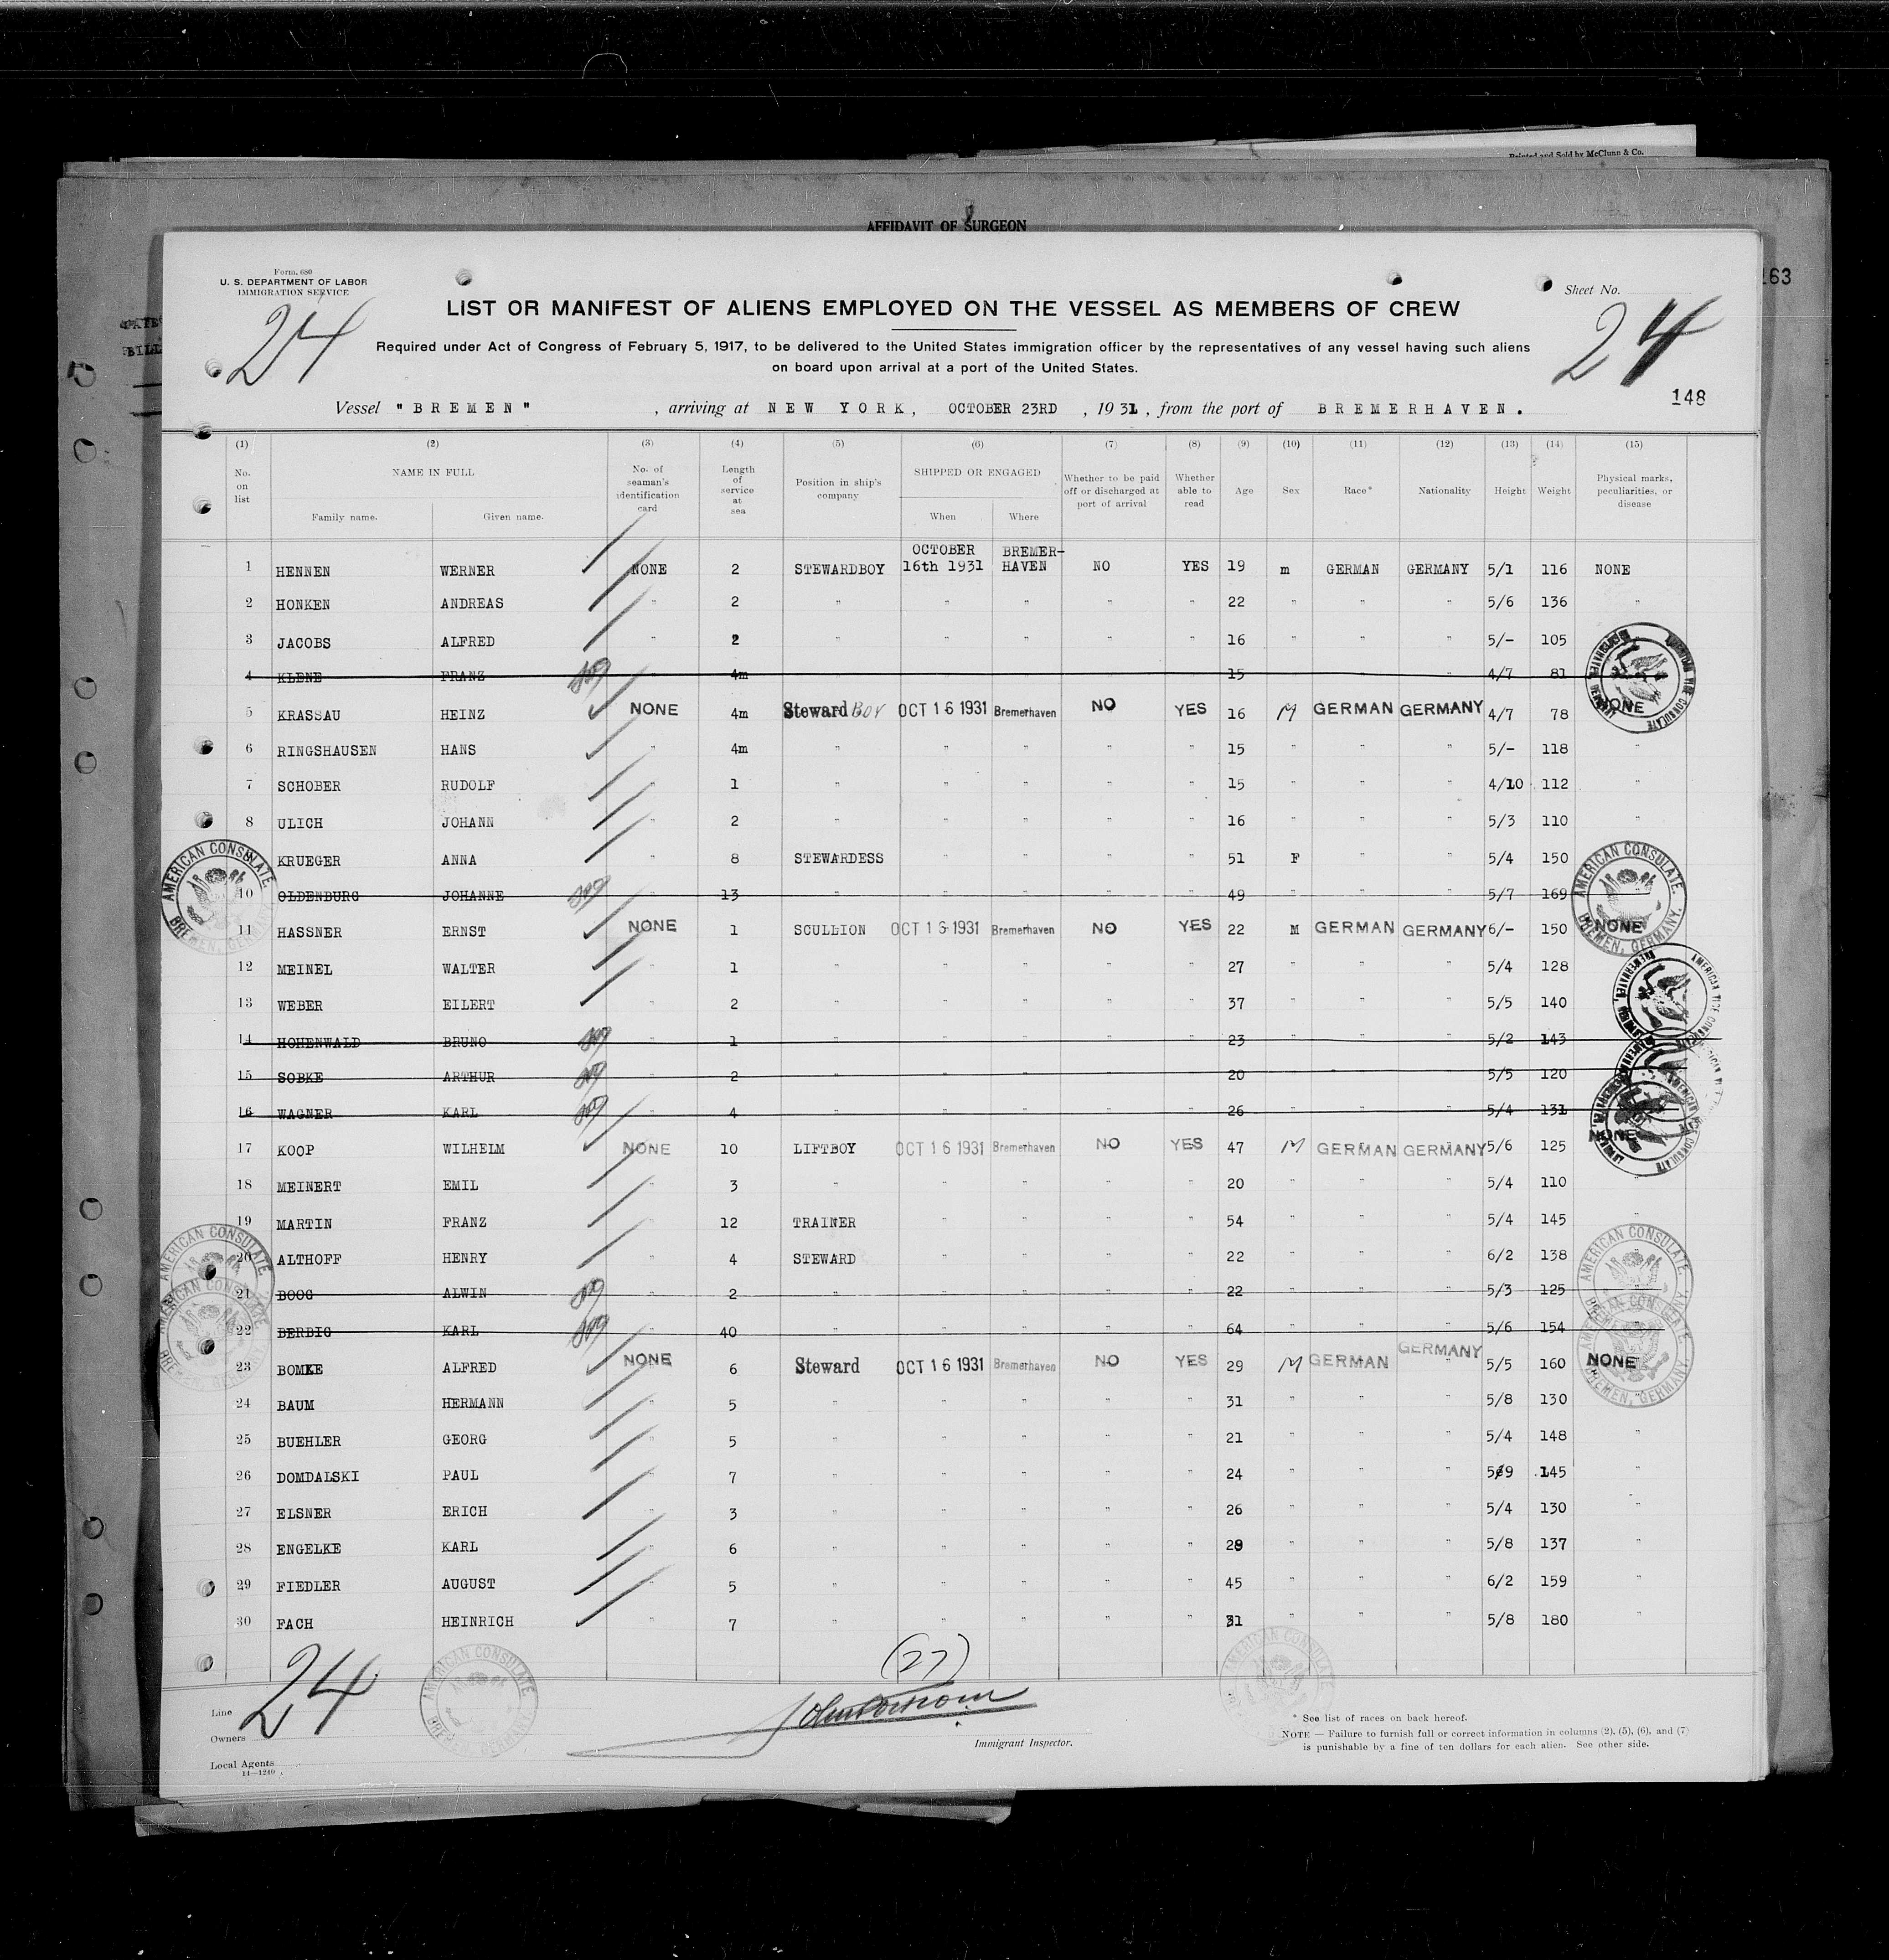 Printed and Sold by McClunn & Co.
AFFIDAVIT OF SURGEON
163
Form 680
U. S. DEPARTMENT OF LABOR
IMMIGRATION SERVICE
Sheet No.
24
24
LIST OR MANIFEST OF ALIENS EMPLOYED ON THE VESSEL AS MEMBERS OF CREW
Required under Act of Congress of February 5, 1917, to be delivered to the United States immigration officer by the representatives of any vessel having such aliens
on board upon arrival at a port of the United States.
148
Vessel "BREMEN", arriving at NEW YORK, OCTOBER 23RD, 1931, from the port of BREMERHAVEN.
(1) (2) (3) (4) (5) (6) (7) (8) (9) (10) (11) (12) (13) (14) (15)
No. on list NAME IN FULL Family name. Given name. No. of seaman's identification card Length of service at sea Position in ship's company SHIPPED OR ENGAGED When Where Whether to be paid off or discharged at port of arrival Whether able to read Age Sex Race* Nationality Height Weight Physical marks, peculiarities, or disease
1 HENNEN WERNER NONE 2 STEWARDBOY OCTOBER 16th 1931 BREMER-HAVEN NO YES 19 m GERMAN GERMANY 5/1 116 NONE
2 HONKEN ANDREAS " 2 " " " " " 22 " " " 5/6 136 "
3 JACOBS ALFRED " 2 " " " " " 16 " " " 5/- 105
4 KLENE FRANZ " 4m " " " " " 15 " " " 4/7 81
5 KRASSAU HEINZ NONE 4m Steward BOY OCT 16 1931 Bremerhaven NO YES 16 M GERMAN GERMANY 4/7 78 NONE
6 RINGSHAUSEN HANS " 4m " " " " " 15 " " " 5/- 118 "
7 SCHOBER RUDOLF " 1 " " " " " 15 " " " 4/10 112 "
8 ULICH JOHANN " 2 " " " " " 16 " " " 5/3 110 "
9 KRUEGER ANNA " 8 STEWARDESS " " " " 51 F " " 5/4 150
10 OLDENBURG JOHANNE " 13 " " " " " 49 " " " 5/7 169
11 HASSNER ERNST NONE 1 SCULLION OCT 16 1931 Bremerhaven NO YES 22 M GERMAN GERMANY 6/- 150 NONE
12 MEINEL WALTER " 1 " " " " " 27 " " " 5/4 128
13 WEBER EILERT " 2 " " " " " 37 " " " 5/5 140
14 HOHENWALD BRUNO " 1 " " " " " 23 " " " 5/2 143
15 SOBKE ARTHUR " 2 " " " " " 20 " " " 5/5 120
16 WAGNER KARL " 4 " " " " " 26 " " " 5/4 131
17 KOOP WILHELM NONE 10 LIFTBOY OCT 16 1931 Bremerhaven NO YES 47 M GERMAN GERMANY 5/6 125 NONE
18 MEINERT EMIL " 3 " " " " " 20 " " " 5/4 110 "
19 MARTIN FRANZ " 12 TRAINER " " " " 54 " " " 5/4 145 "
20 ALTHOFF HENRY " 4 STEWARD " " " " 22 " " " 6/2 138
21 BOOG ALWIN " 2 " " " " " 22 " " " 5/3 125
22 BERBIG KARL " 40 " " " " " 64 " " " 5/6 154
23 BOMKE ALFRED NONE 6 Steward OCT 16 1931 Bremerhaven NO YES 29 M GERMAN GERMANY 5/5 160 NONE
24 BAUM HERMANN " 5 " " " " " 31 " " " 5/8 130 "
25 BUEHLER GEORG " 5 " " " " " 21 " " " 5/4 148 "
26 DOMDALSKI PAUL " 7 " " " " " 24 " " " 5/9 145 "
27 ELSNER ERICH " 3 " " " " " 26 " " " 5/4 130 "
28 ENGELKE KARL " 6 " " " " " 28 " " " 5/8 137 "
29 FIEDLER AUGUST " 5 " " " " " 45 " " " 6/2 159 "
30 FACH HEINRICH " 7 " " " " " 31 " " " 5/8 180 "
AMERICAN CONSULATE
BREMEN, GERMANY
(27)
24
Line
Owners
Local Agents
14—1240
Immigrant Inspector.
* See list of races on back hereof.
NOTE — Failure to furnish full or correct information in columns (2), (5), (6), and (7)
is punishable by a fine of ten dollars for each alien. See other side.